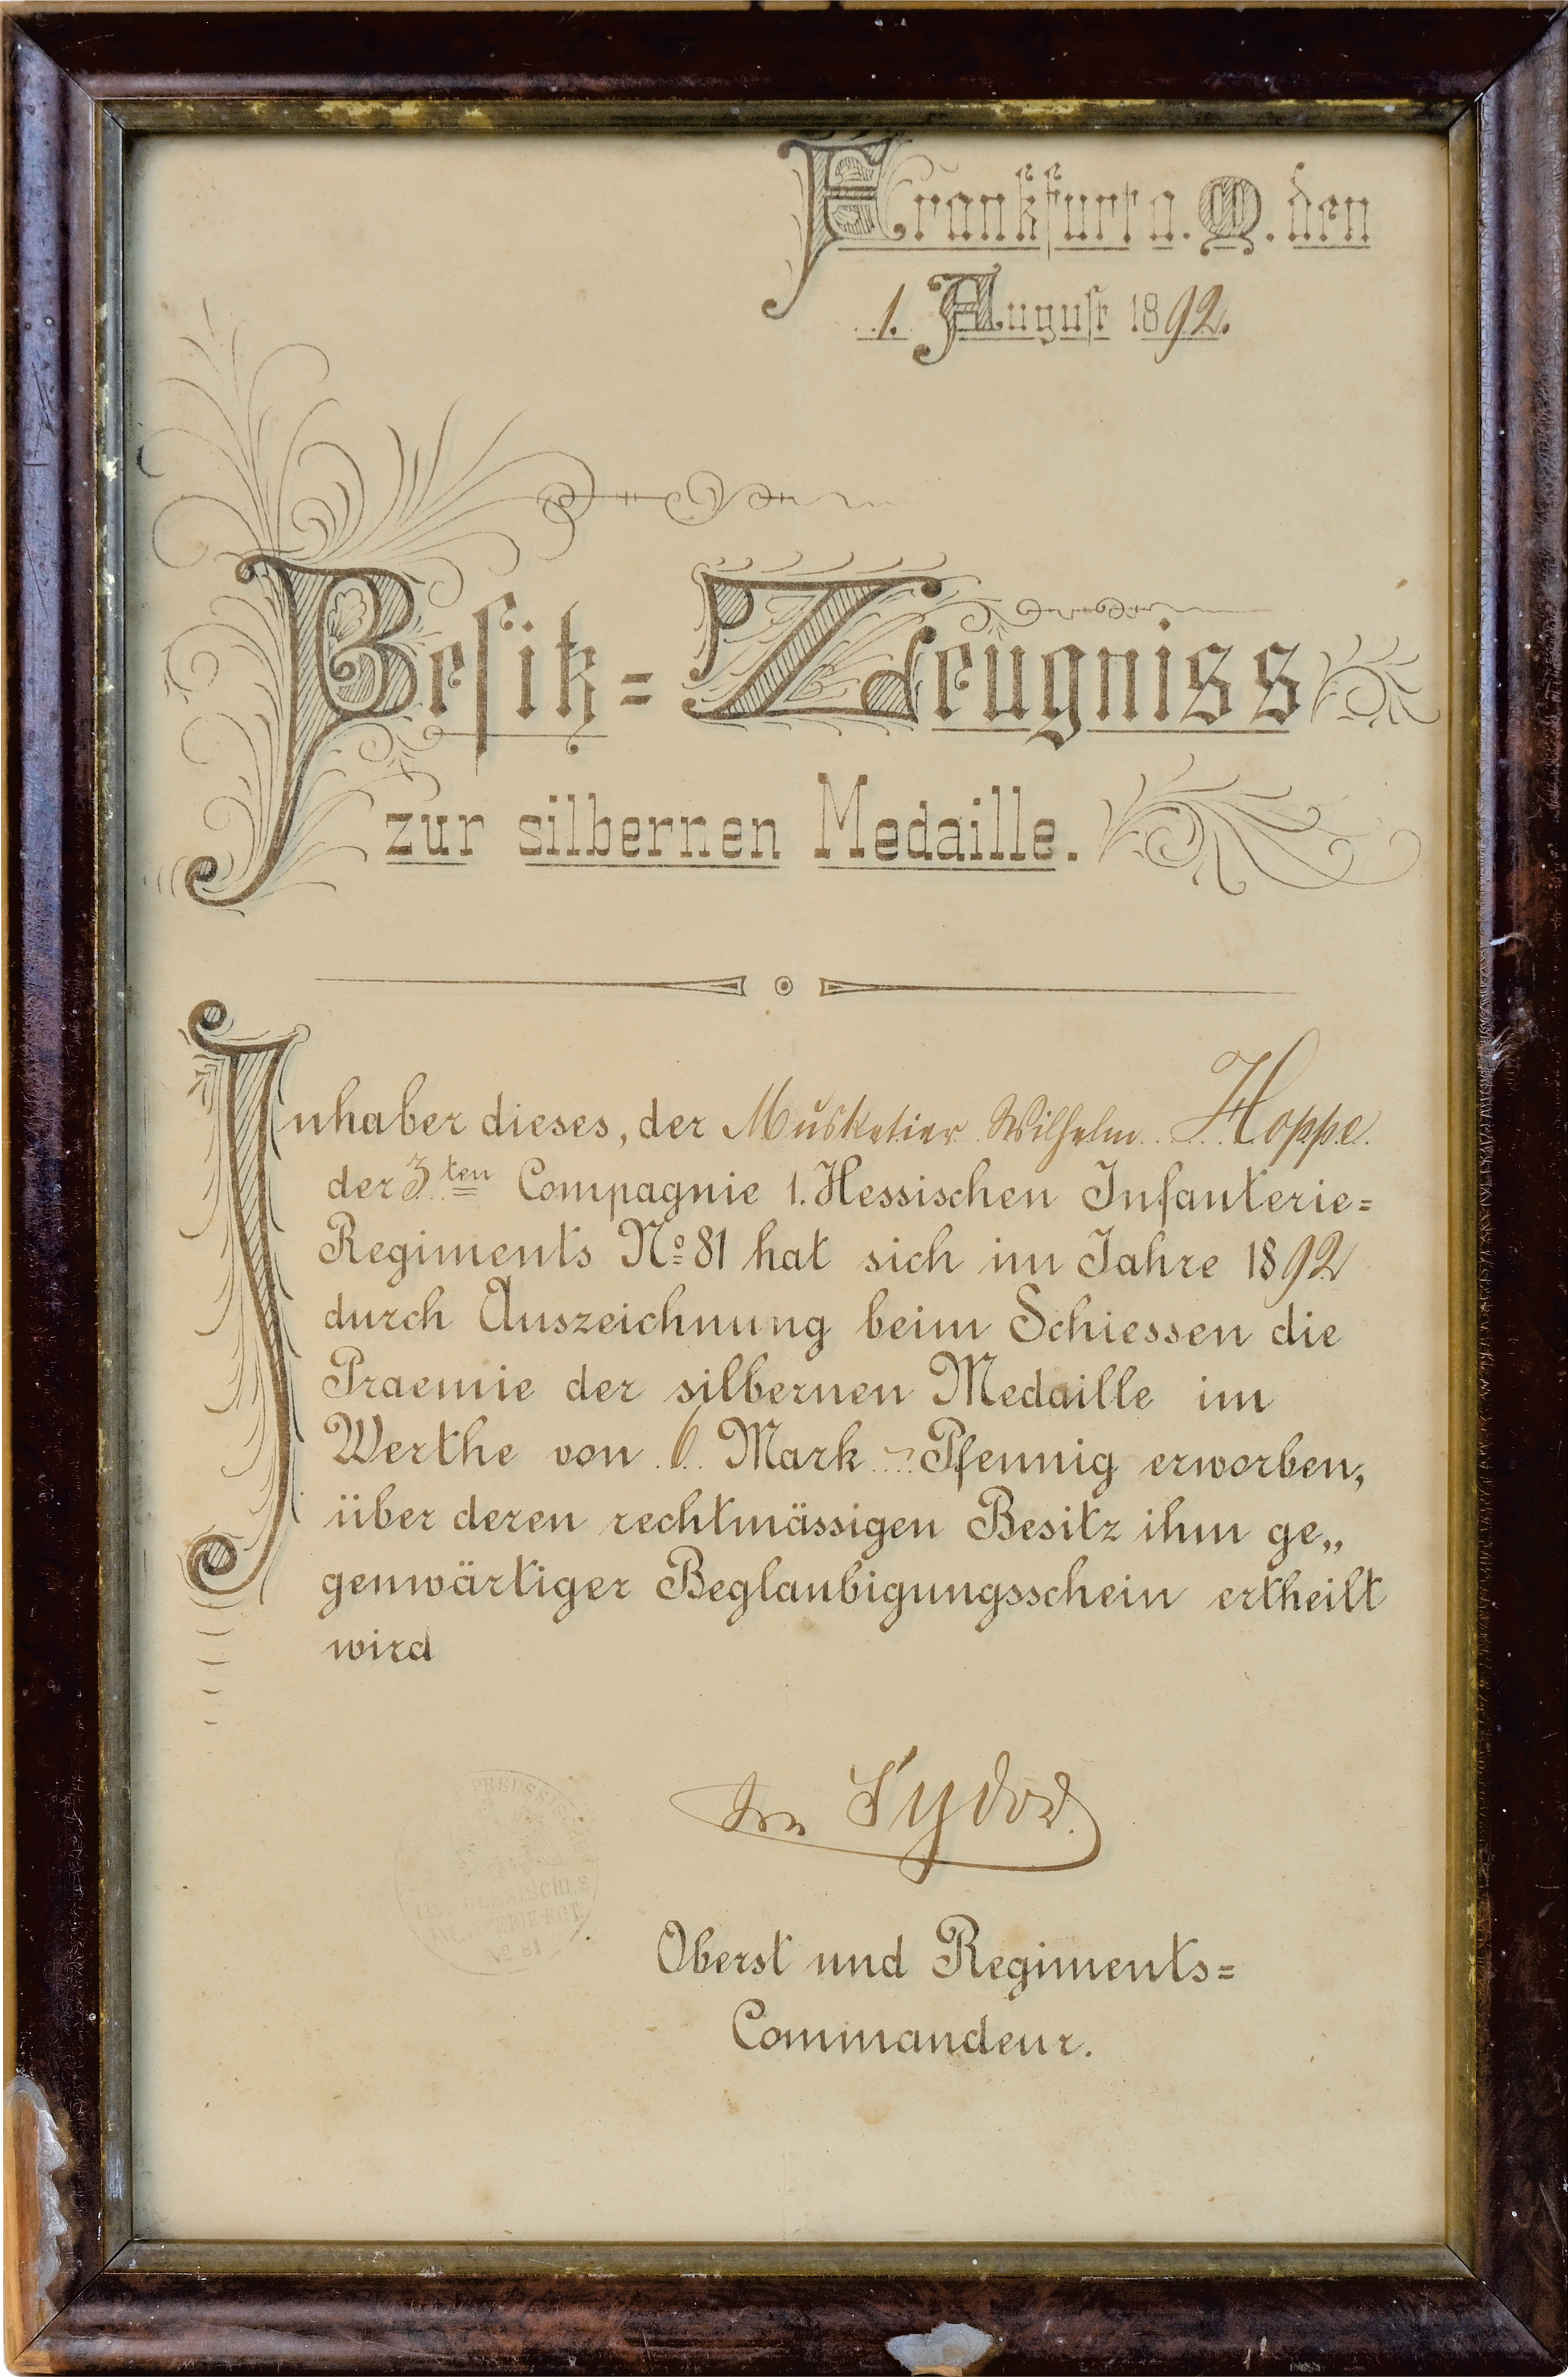 Frankfurt a. M. den
1. August 1892.
Besitz = Zeugniss
zur silbernen Medaille.
Inhaber dieses, der Musketier Wilhelm Hoppe
der 3ten Compagnie 1. Hessischen Infanterie=
Regiments No 81 hat sich im Jahre 1892
durch Auszeichnung beim Schiessen die
Praemie der silbernen Medaille im
Werthe von 6 Mark - Pfennig erworben,
über deren rechtmässigen Besitz ihm ge„
genwärtiger Beglaubigungsschein ertheilt
wird
von Sydow.
Oberst und Regiments=
Commandeur.
PREUSSISCHES
HESSISCHES
INFANTERIE-RGT.
No 81